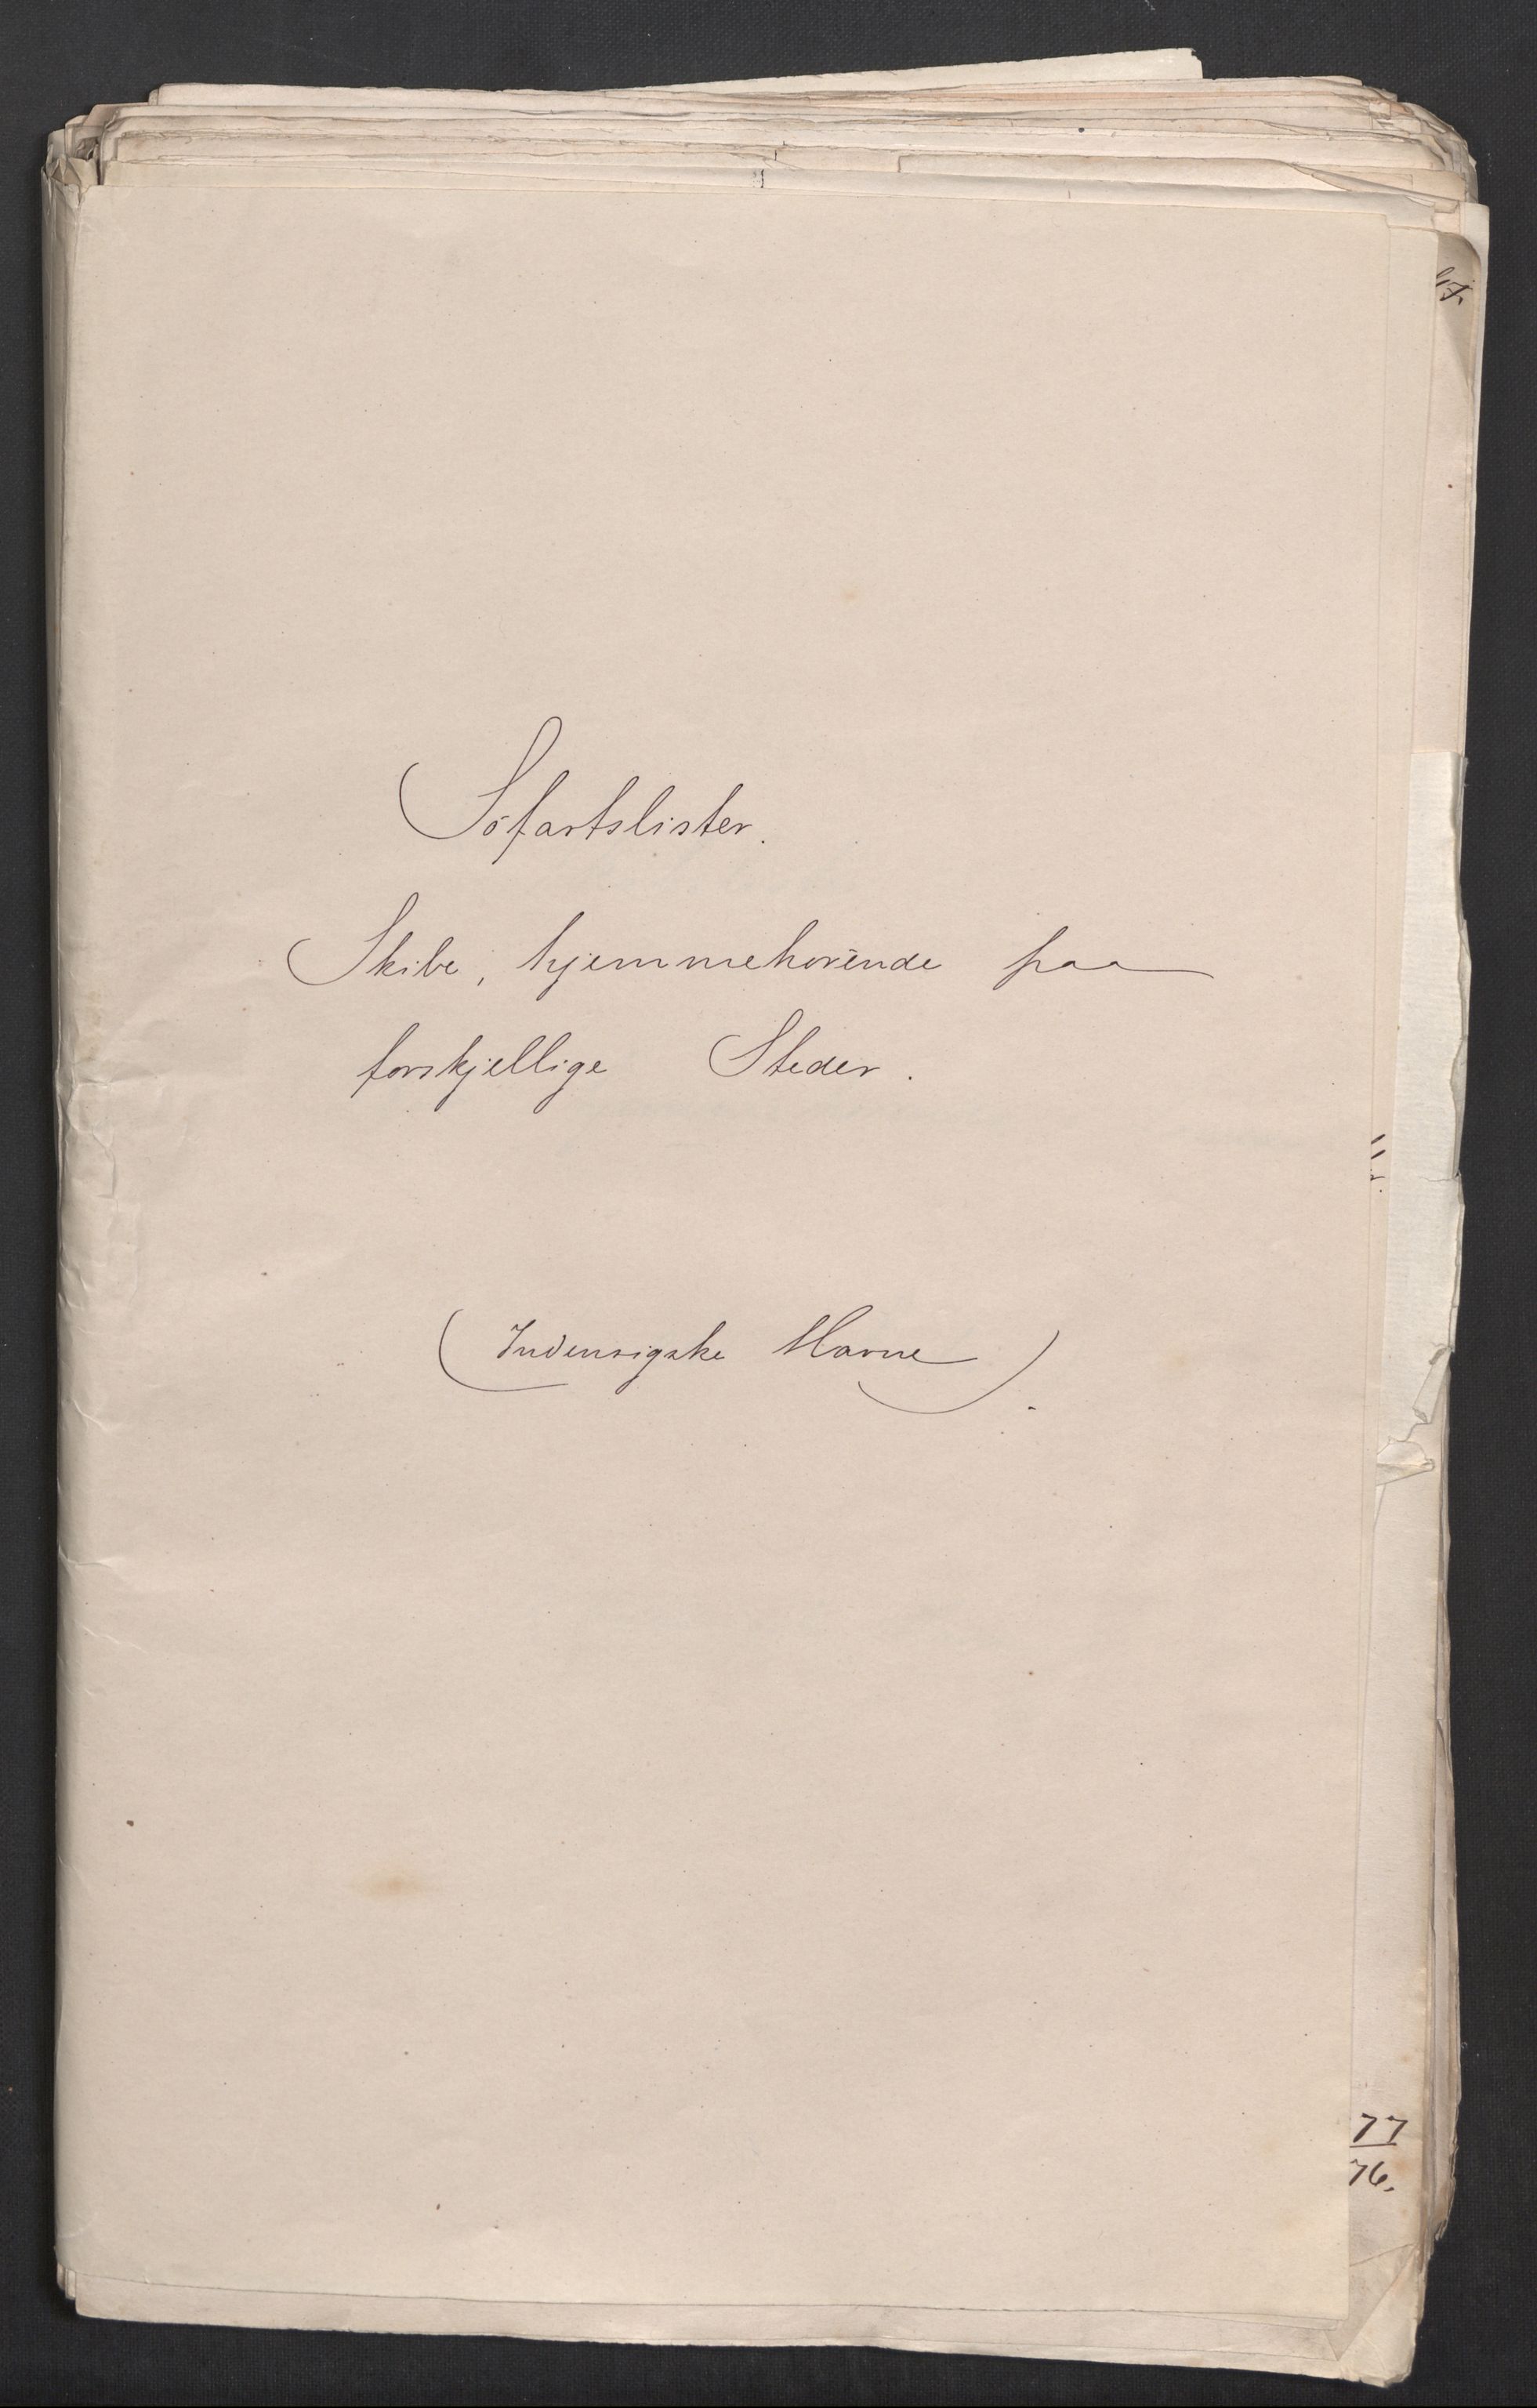 Söfartslister.
Skibe, hjemmehörende paa
forskjellige Steder.
(Indenrigske Havne).
77
76.